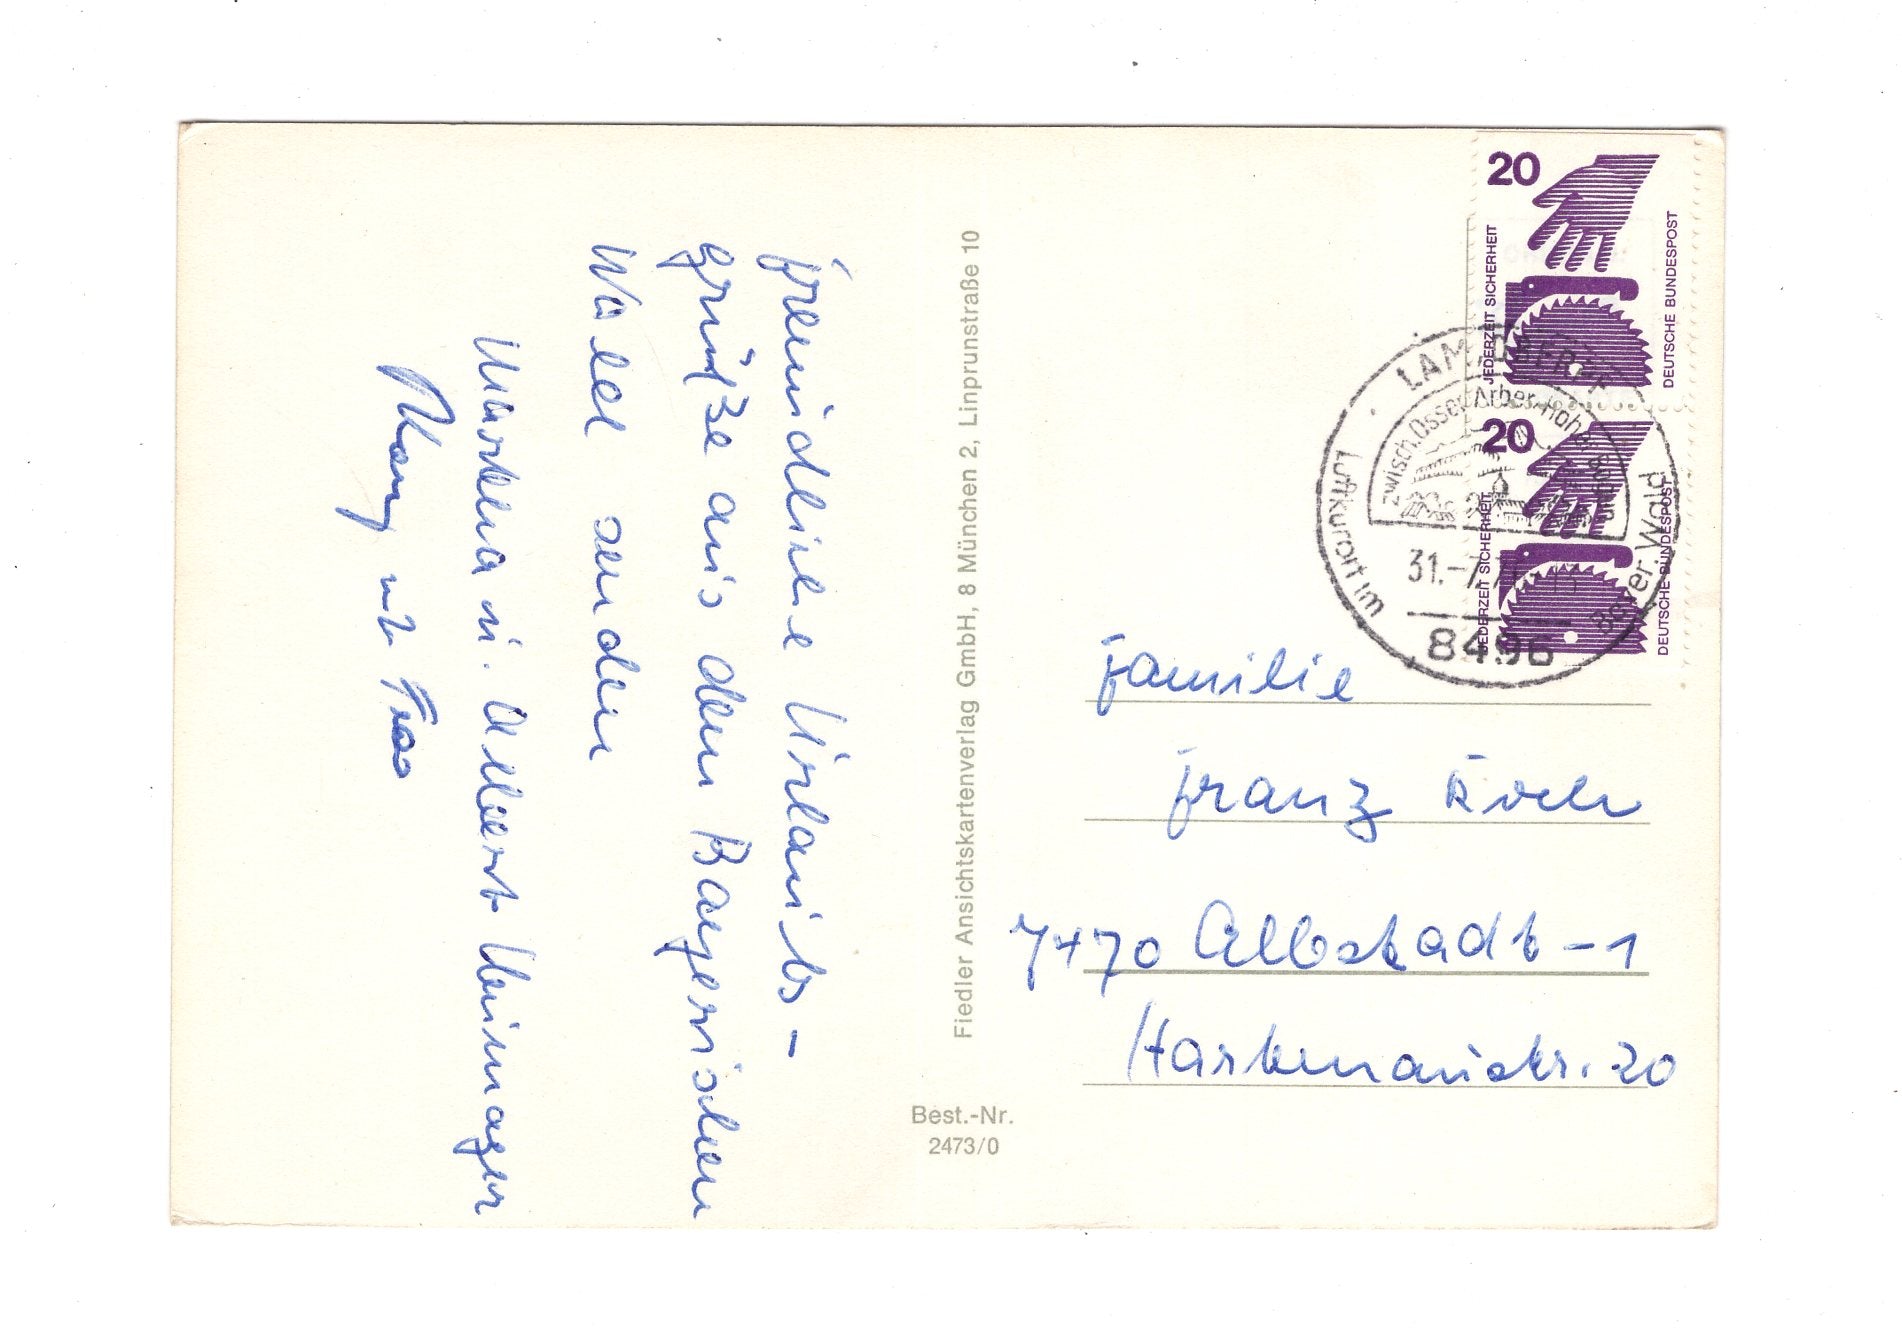 freundliche Urlaubs-
grüße aus dem Bayerischen
Wald senden
Martha u. Albert
mit Frau
Fiedler Ansichtskartenverlag GmbH, 8 München 2, Linprunstraße 10
Best.-Nr.
2473/0
20
JEDERZEIT SICHERHEIT
DEUTSCHE BUNDESPOST
20
JEDERZEIT SICHERHEIT
DEUTSCHE BUNDESPOST
LAM, OBERPF
zwisch. Osser-Arber-Hoh
31.-7.
8496
Luftkurort im Bayer. Wald
Familie
Franz Koch
7470 Albstadt-1
Hartenaustr. 20